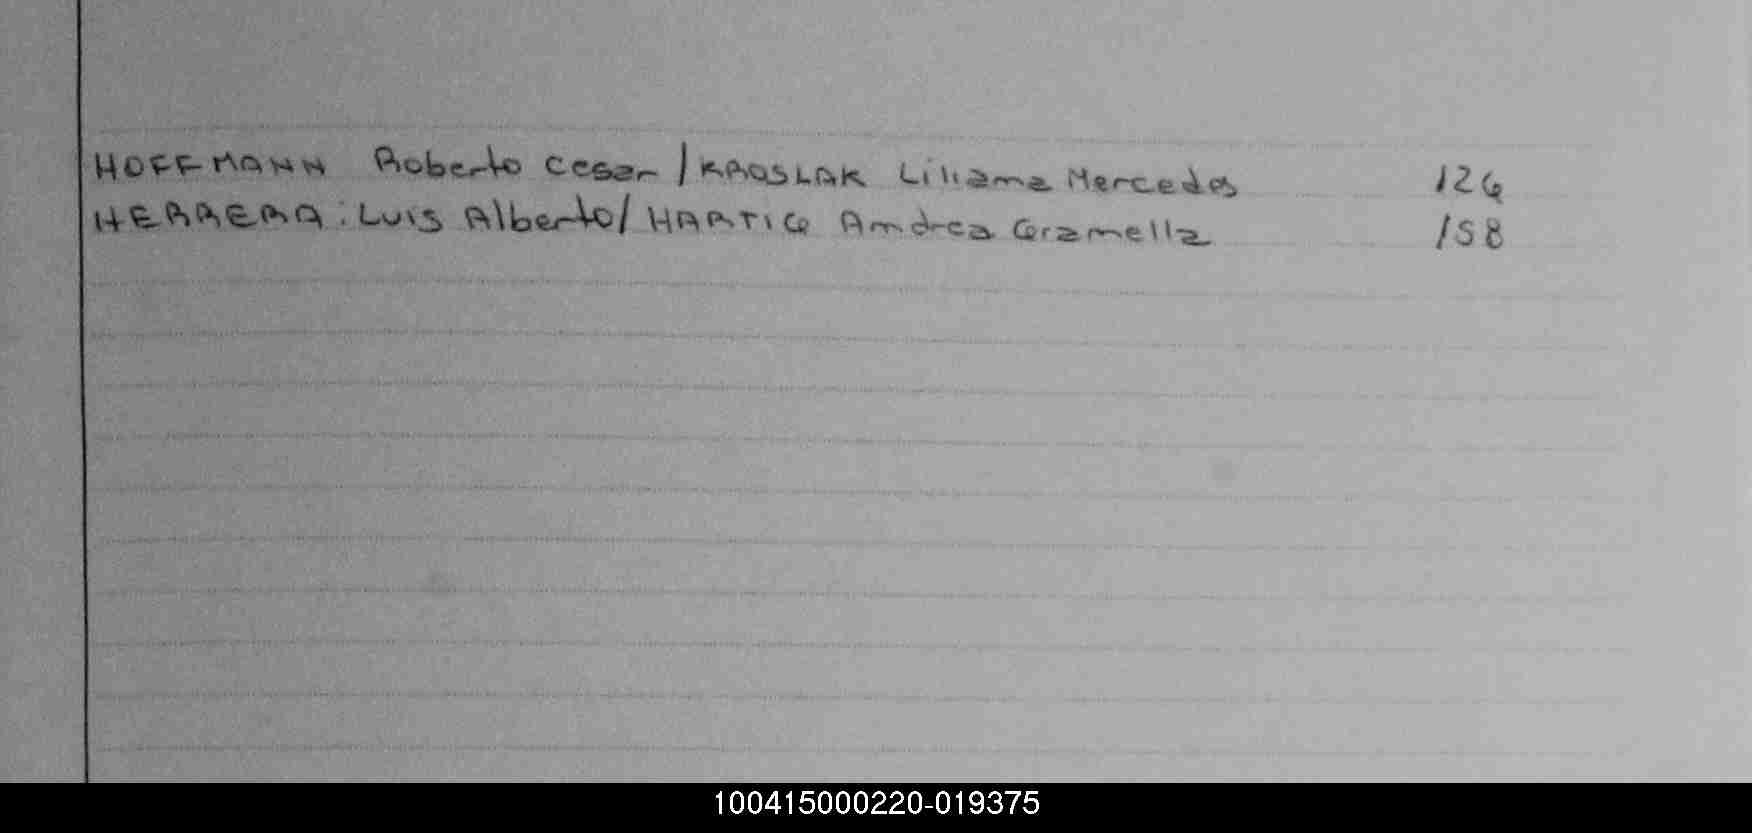 HOFFMANN Roberto Cesar / KROSLAK Liliama Mercedes 126
HERRERA: Luis Alberto / HARTIG Andrea Gramella 158
100415000220-019375